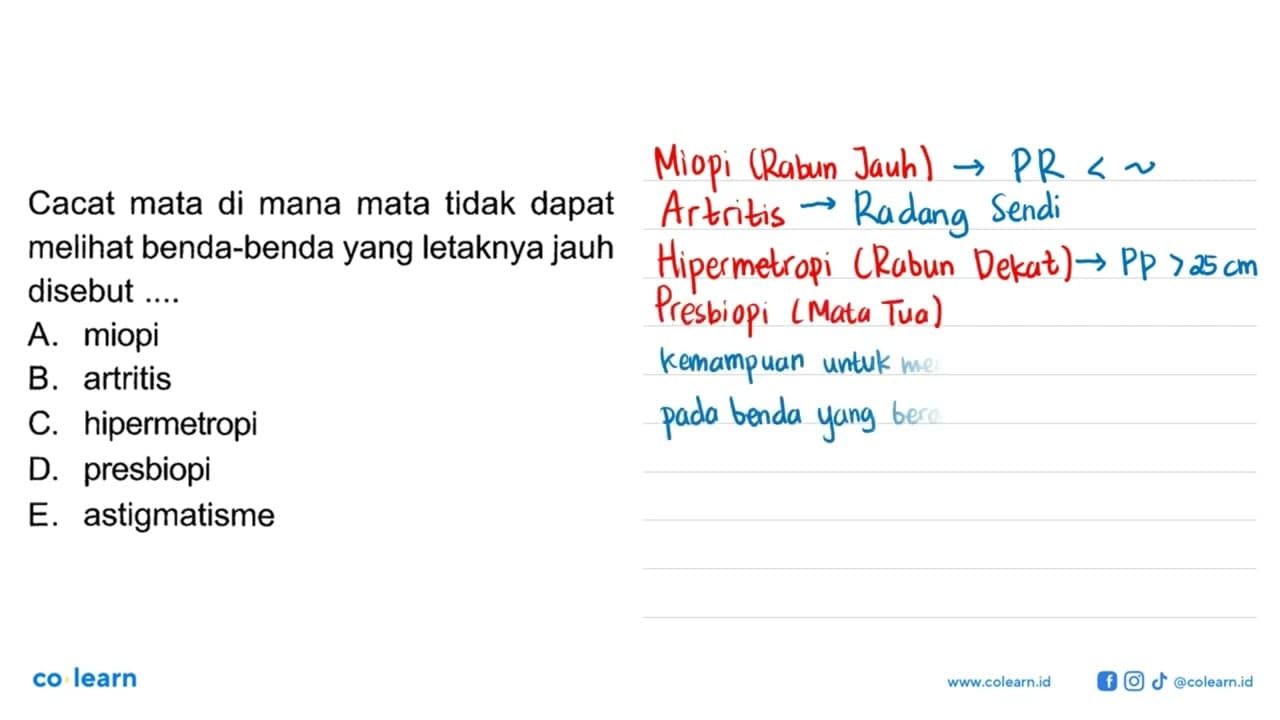 Cacat mata di mana mata tidak dapat
melihat benda-benda yang letaknya jauh
disebut ....
A. miopi
B. artritis
C. hipermetropi
D. presbiopi
E. astigmatisme
Miopi (Rabun Jauh) → PR < ~
Artritis → Radang Sendi
Hipermetropi (Rabun Dekat) → PP > 25 cm
Presbiopi (Mata Tua)
kemampuan untuk
pada benda yang
co learn
www.colearn.id
@colearn.id